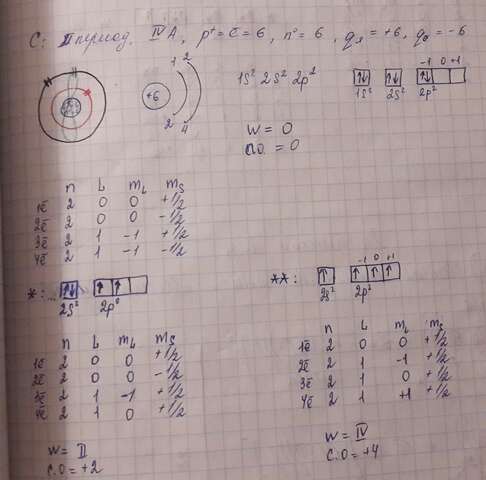 C: II период, IVA, p⁺ = ē = 6, n° = 6, qя = +6, qо = -6
1 2
+6
2 4
1s² 2s² 2p²
-1 0 +1
↑↓ ↑↓ ↑↓
1s² 2s² 2p²
W = 0
с.о. = 0
n L mL ms
1ē 2 0 0 +1/2
2ē 2 0 0 -1/2
3ē 2 1 -1 +1/2
4ē 2 1 -1 -1/2
*: ↑↓ ↑ ↑
2s² 2p²
n L mL ms
1ē 2 0 0 +1/2
2ē 2 0 0 -1/2
3ē 2 1 -1 +1/2
4ē 2 1 0 +1/2
W = II
С.О = +2
-1 0 +1
**: ↑ ↑ ↑ ↑
2s¹ 2p³
n L mL ms
1ē 2 0 0 +1/2
2ē 2 1 -1 +1/2
3ē 2 1 0 +1/2
4ē 2 1 +1 +1/2
W = IV
С.О = +4